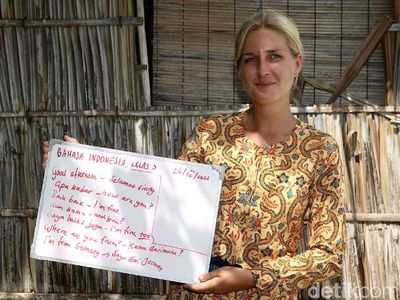 BAHASA INDONESIA KELAS 3
26/10/2021
Good afternoon - Selamat siang
Apa kabar - how are you?
Baik - I'm fine
and you?
Saya baik juga - I'm fine too
Where are you from? - Kamu darimana?
I'm from Germany → Saya dari Jerman
detikcom